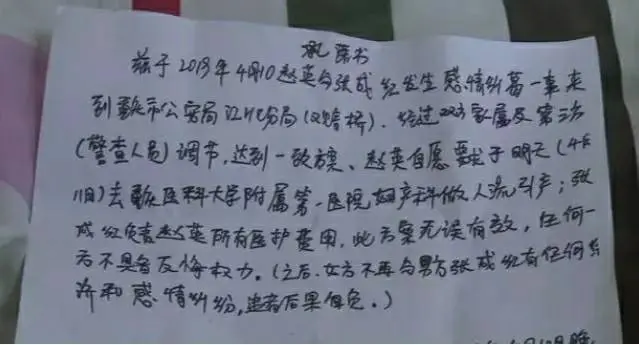 承诺书
兹于2013年4月10赵英与张成红发生感情纠葛一事来
到重庆市公安局江北分局(双塔桥)．经过双方家属及第三方
(警查人员)调节,达到一致方案、赵英自愿要求于明天(4月
11日)去重庆医科大学附属第一医院妇产科做人流引产；张
成红负责赵英所有医护费用.此方案无误有效,任何一
方不具备反悔权力。(之后.女方不再与男方张成红有任何经
济和感情纠纷,违者后果自负.)